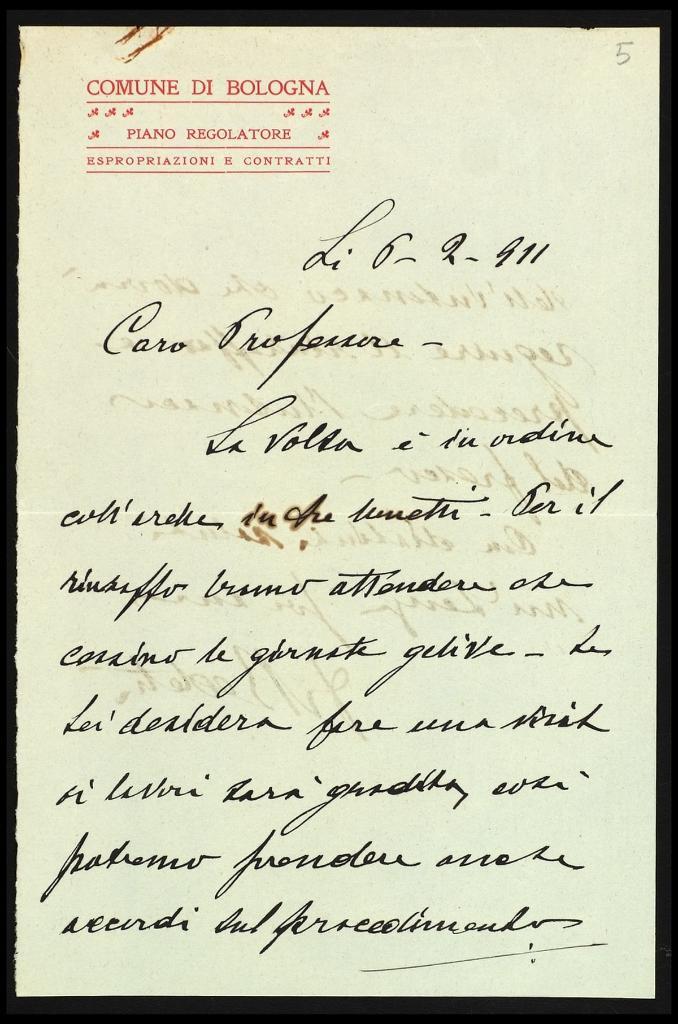 5
COMUNE DI BOLOGNA
PIANO REGOLATORE
ESPROPRIAZIONI E CONTRATTI
Li 6 - 2 - 911
Caro Professore -
La Volta è in ordine
coll'arche in che lunetti - Per il
rinzaffo bramo attendere che
cessino le giornate gelive - Se
Lei desidera fare una visita
ai lavori sarà gradita, così
potremo prendere anche
accordi sul procedimento